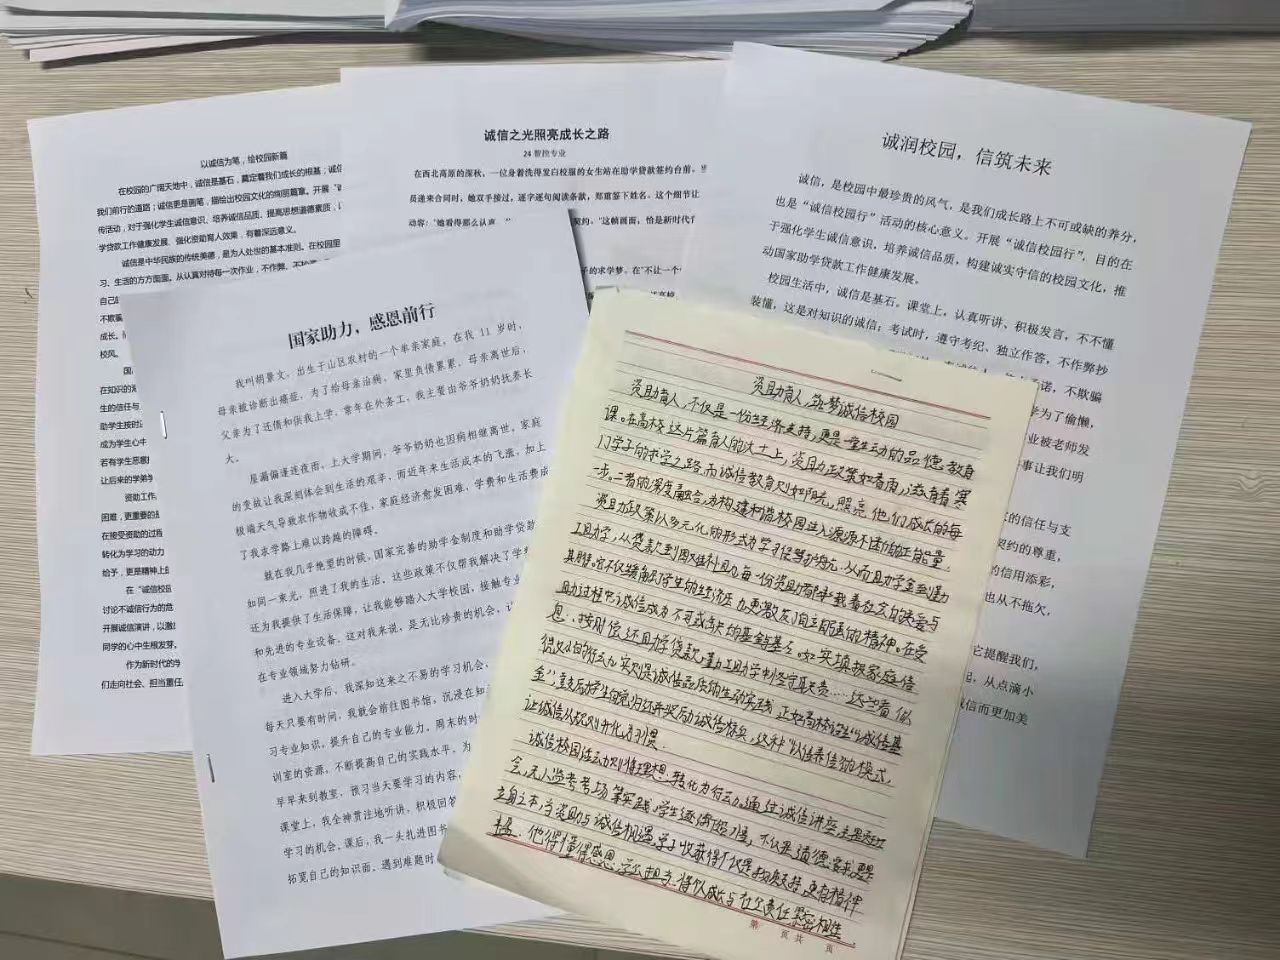 以诚信为笔，绘校园新篇
在校园的广阔天地中，诚信是基石，奠定着我们成长的根基；诚信
我们前行的道路；诚信更是画笔，描绘出校园文化的绚丽篇章。开展“诚
传活动，对于强化学生诚信意识、培养诚信品质、提高思想道德素质，
学贷款工作健康发展、强化资助育人效果，有着深远意义。
诚信是中华民族的传统美德，是为人处世的基本准则。在校园里
习、生活的方方面面。从认真对待每一次作业，不作弊、不抄袭
自己的
不欺骗
成长。
校风。
在知识的海
生的信任与
助学生按时
成为学生心中
若有学生恶意
让后来的学弟学
资助工作
困难，更重要的是
在接受资助的过程
转化为学习的动力
给予，更是精神上的
在“诚信校园
讨论不诚信行为的危
开展诚信演讲，以激
同学的心中生根发芽。
作为新时代的学
们走向社会、担当重任
诚信之光照亮成长之路
24 智控专业
在西北高原的深秋，一位身着洗得发白校服的女生站在助学贷款签约台前。当
员递来合同时，她双手接过，逐字逐句阅读条款，郑重签下姓名。这个细节让
动容：“她看得那么认真
契约。”这帧画面，恰是新时代千
子的求学梦。在“不让一个
诚润校园，信筑未来
诚信，是校园中最珍贵的风气，是我们成长路上不可或缺的养分，
也是“诚信校园行”活动的核心意义。开展“诚信校园行”，目的在
于强化学生诚信意识，培养诚信品质，构建诚实守信的校园文化，推
动国家助学贷款工作健康发展。
校园生活中，诚信是基石。课堂上，认真听讲、积极发言，不不懂
装懂，这是对知识的诚信；考试时，遵守考纪、独立作答，不作弊抄
承诺，不欺骗
学为了偷懒，
业被老师发
事让我们明
的信任与支
契约的尊重，
的信用添彩，
也从不拖欠，
它提醒我们，
起，从点滴小
诚信而更加美
国家助力，感恩前行
我叫胡景文，出生于山区农村的一个单亲家庭，在我 11 岁时，
母亲被诊断出癌症，为了给母亲治病，家里负债累累，母亲离世后，
父亲为了还债和供我上学，常年在外务工，我主要由爷爷奶奶抚养长
大。
屋漏偏逢连夜雨，上大学期间，爷爷奶奶也因病相继离世，家庭
的变故让我深刻体会到生活的艰辛，而近年来生活成本的飞涨，加上
极端天气导致农作物收成不佳，家庭经济愈发困难，学费和生活费成
了我求学路上难以跨越的障碍。
就在我几乎绝望的时候，国家完善的助学金制度和助学贷款
如同一束光，照进了我的生活。这些政策不仅帮我解决了学费
还为我提供了生活保障，让我能够踏入大学校园，接触专业
和先进的专业设备。这对我来说，是无比珍贵的机会，让
在专业领域努力钻研。
进入大学后，我深知这来之不易的学习机会，
每天只要有时间，我就会前往图书馆，沉浸在知
习专业知识，提升自己的专业能力。周末的时
训室的资源，不断提高自己的实践水平。为
早早来到教室，预习当天要学习的内容，
课堂上，我全神贯注地听讲，积极回答
学习的机会。课后，我一头扎进图书
拓宽自己的知识面。遇到难题时
资助育人，筑梦诚信校园
资助育人，不仅是一份经济支持，更是一堂生动的品德教育
课。在高校这片育人的沃土上，资助政策如春雨，滋养着寒
门学子的求学之路，而诚信教育则如阳光，照亮他们成长的每
一步。二者的深度融合，为构建和谐校园注入源源不断的正能量。
资助政策以多元化的形式为学子保驾护航，从而助学金到勤
工助学，从贷款到困难补助，每一份资助都承载着社会的关爱与
期盼。它不仅缓解了学生的经济压力，更激发了自立自强的精神。在受
助过程中，诚信成为不可或缺的基石。如实填报家庭信
息、按时偿还助学贷款、勤工助学中恪守职责……这些看似
微小的行为，实则是诚信品质的生动实践。正如高校设立“诚信基
金”，
让诚信从规则升化为习惯。
诚信校园活动则将理想转化为行动，通过诚信讲座、主题班
会、无人监考考场等实践，学生逐渐领悟，不仅是道德要求，更是
立身之本，当资助与诚信相遇，学子收获得不仅是物质支持，更有精神
丰盈。他们懂得感恩，学会担当，将个人成长与社会责任紧密相连。
第 页 共 页